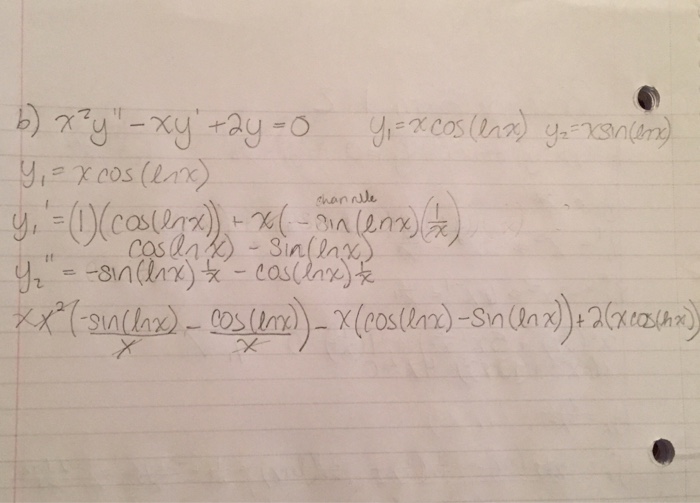 b) x²y" - xy' + 2y = 0   y₁ = x cos(lnx)   y₂ = x sin(lnx)
y₁ = x cos(lnx)
y₁' = (1)(cos(lnx)) + x(-sin(lnx)(1/x)
cos(lnx) - sin(lnx)
y₂" = -sin(lnx) 1/x - cos(lnx) 1/x
x x² (-sin(lnx)/x - cos(lnx)/x) - x(cos(lnx) - sin(lnx)) + 2(x cos(lnx))